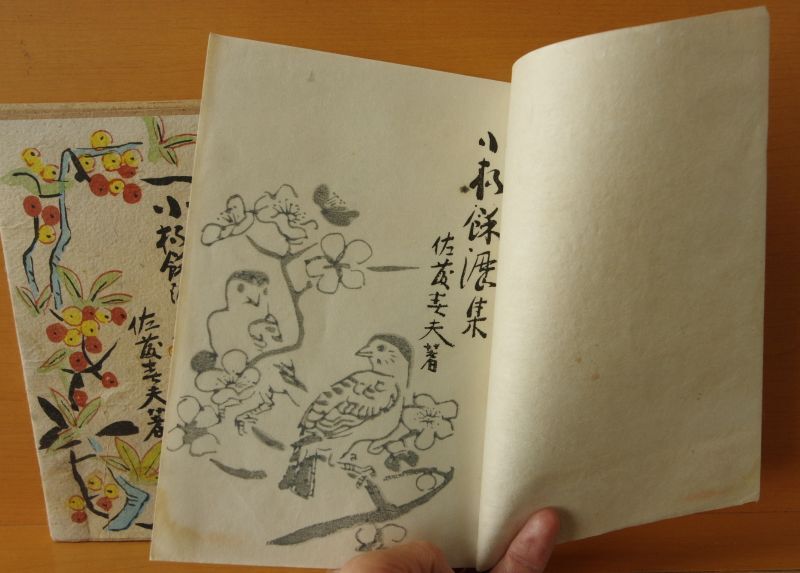 小杯餘瀝集
佐藤春夫著
小杯餘
佐藤春夫著